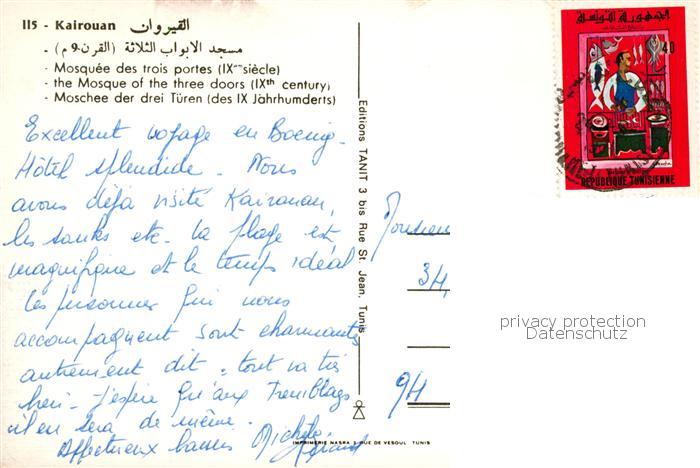 115 - Kairouan القيروان
مسجد الابواب الثلاثة (القرن 9 م) -
- Mosquée des trois portes (IXème siècle)
- the Mosque of the three doors (IXth century)
- Moschee der drei Türen (des IX Jährhumderts)
Excellent voyage en Boeing.
Hôtel splendide. Nous
avons déjà visité Kairouan,
les souks etc. la plage est
magnifique et le temps idéal
les personnes qui nous
accompagnent sont charmantes
autrement dit : tout va très
bien - J'espère qu'aux Tremblays
il en sera de même.
Affectueux baisers Michel
Editions TANIT 3 bis Rue St. Jean, Tunis
IMPRIMERIE NASRA 3 RUE DE VESOUL TUNIS
الجمهورية التونسية
40
REPUBLIQUE TUNISIENNE
Monsieur
34,
94
privacy protection
Datenschutz